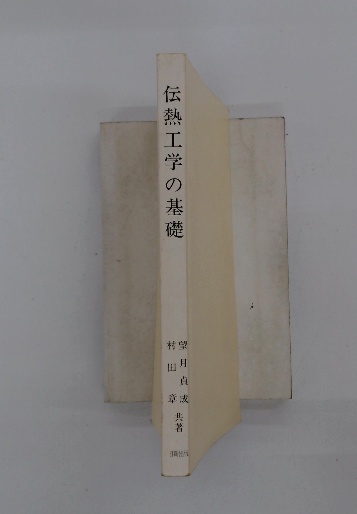 伝熱工学の基礎
望月貞成
村田章
共著